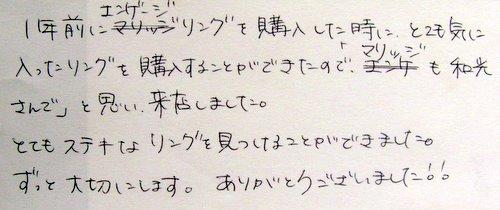 エンゲージ
1年前に マリッジリングを購入した時に、とても気に
マリッジ
入ったリングを購入することができたので、「エンゲも和光
さんで」と思い、来店しました。
とてもステキなリングを見つけることができました。
ずっと大切にします。ありがとうございました!!